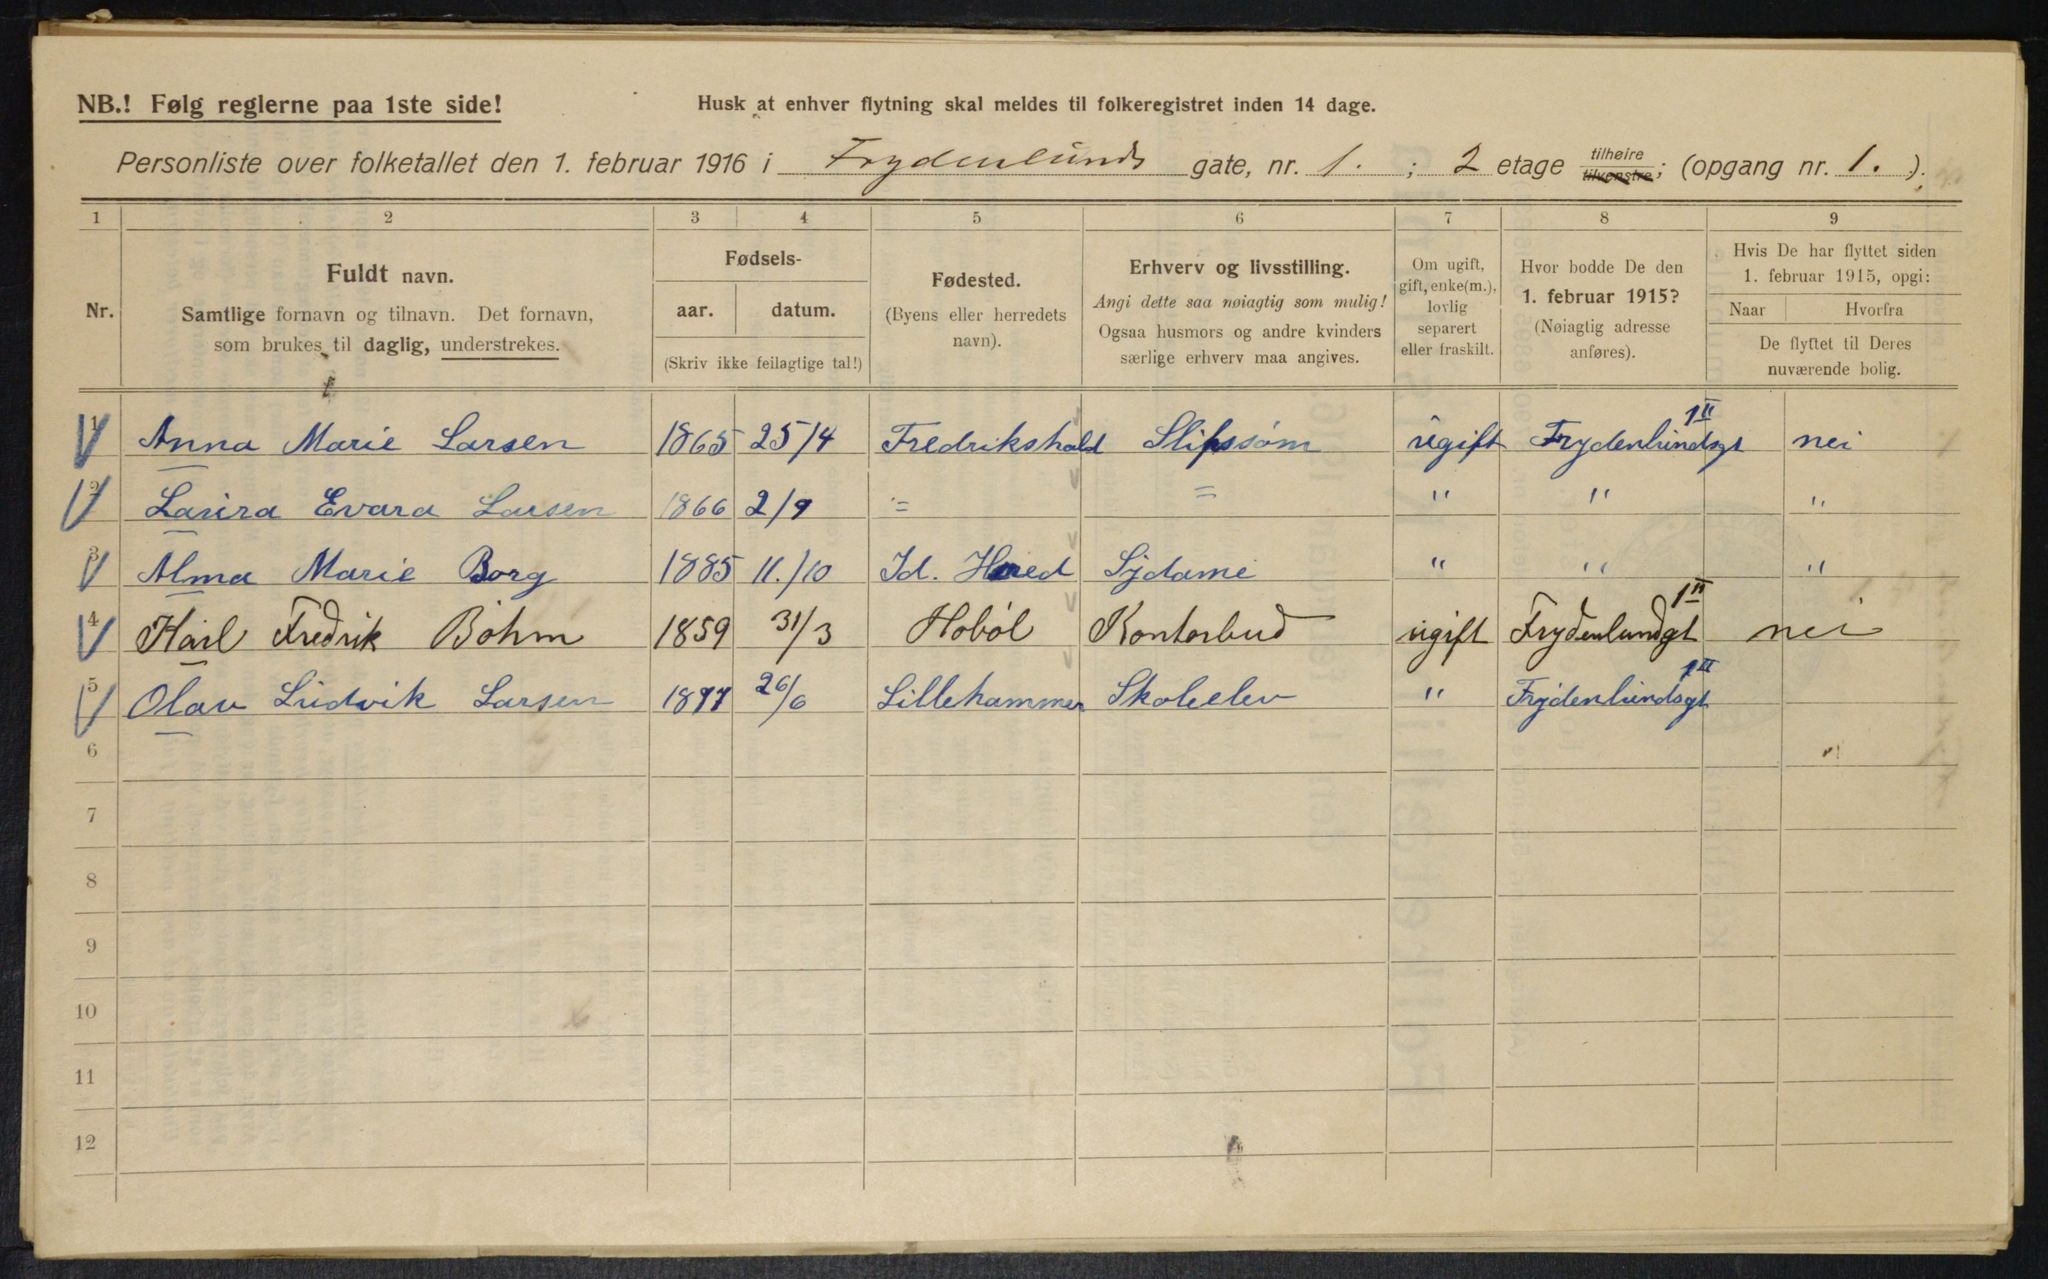 NB.! Følg reglerne paa 1ste side! Husk at enhver flytning skal meldes til folkeregistret inden 14 dage.
Personliste over folketallet den 1. februar 1916 i Frydenlunds gate, nr. 1. ; 2 etage tilhøire tilvenstre; (opgang nr. 1. ).
1 2 3 4 5 6 7 8 9
Nr. Fuldt navn. Samtlige fornavn og tilnavn. Det fornavn, som brukes til daglig, understrekes.
Fødsels- aar. datum. (Skriv ikke feilagtige tal!)
Fødested. (Byens eller herredets navn).
Erhverv og livsstilling. Angi dette saa nøiagtig som mulig! Ogsaa husmors og andre kvinders særlige erhverv maa angives.
Om ugift, gift, enke(m.), lovlig separert eller fraskilt.
Hvor bodde De den 1. februar 1915? (Nøiagtig adresse anføres).
Hvis De har flyttet siden 1. februar 1915, opgi: Naar Hvorfra De flyttet til Deres nuværende bolig.
1 Anna Marie Larsen 1865 25/4 Fredrikshald Slipssøm ugift Frydenlundsgt 1 II nei
2 Laura Evara Larsen 1866 2/9 = = " " "
3 Alma Marie Borg 1885 11./10 Id. Hered Sydame " " "
4 Karl Fredrik Böhm 1859 31/3 Hoböl Kontorbud ugift Frydenlundgt 1 II nei
5 Olav Ludvik Larsen 1877 26/6 Lillehammer Skoleelev " Frydenlundsgt 1 II
6
7
8
9
10
11
12